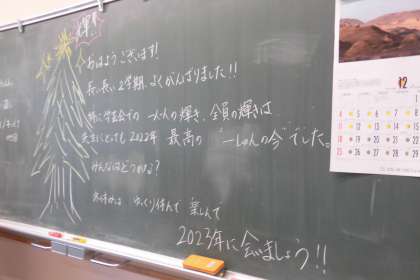 輝
おはようございます!
長い長い2学期、よくがんばりました!!
特に学芸会での一人一人の輝き、全員の輝きは
先生にとっても2022年 最高の "一しゅんの今"でした。
みんなはどうかな?
冬休みは ゆっくり休んで 楽しんで
2023年に会いましょう!!
12
4 5 6 7 8 9 10
11 12 13 14 15 16 17
18 19 20 21 22 23 24
25 26 27 28 29 30 31